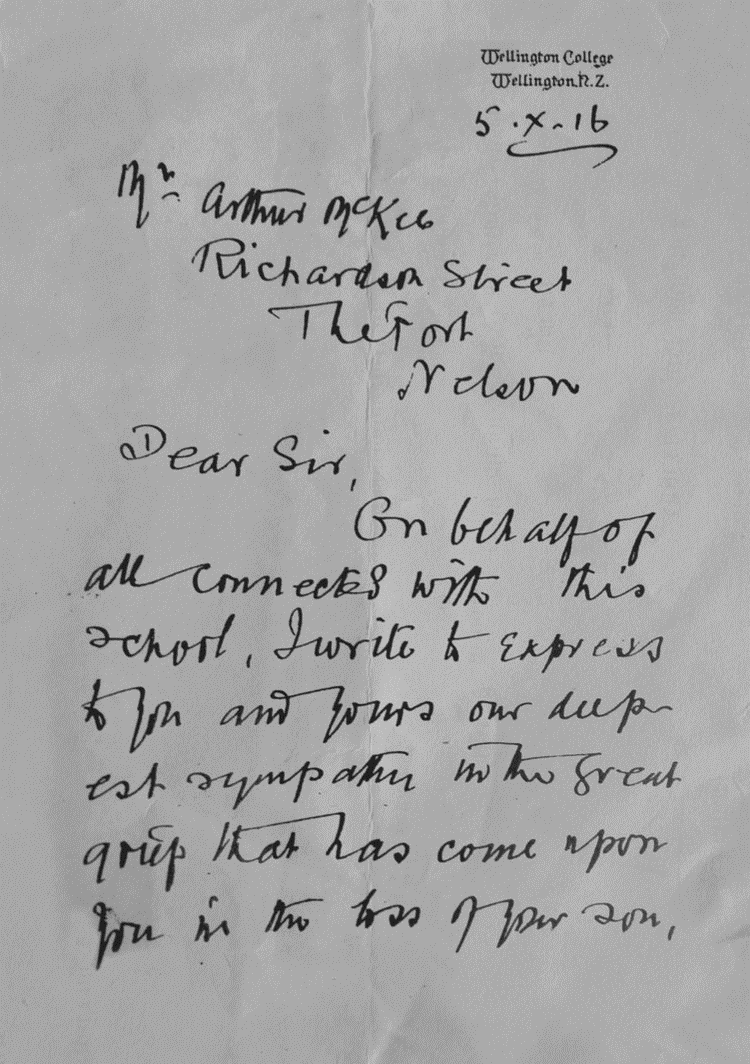 Wellington College
Wellington N.Z.
5.X.16
Mr Arthur McKee
Richardson Street
The Port
Nelson
Dear Sir,
On behalf of
all connected with this
school, I write to express
to you and yours our deep-
est sympathy in the great
grief that has come upon
you in the loss of your son,